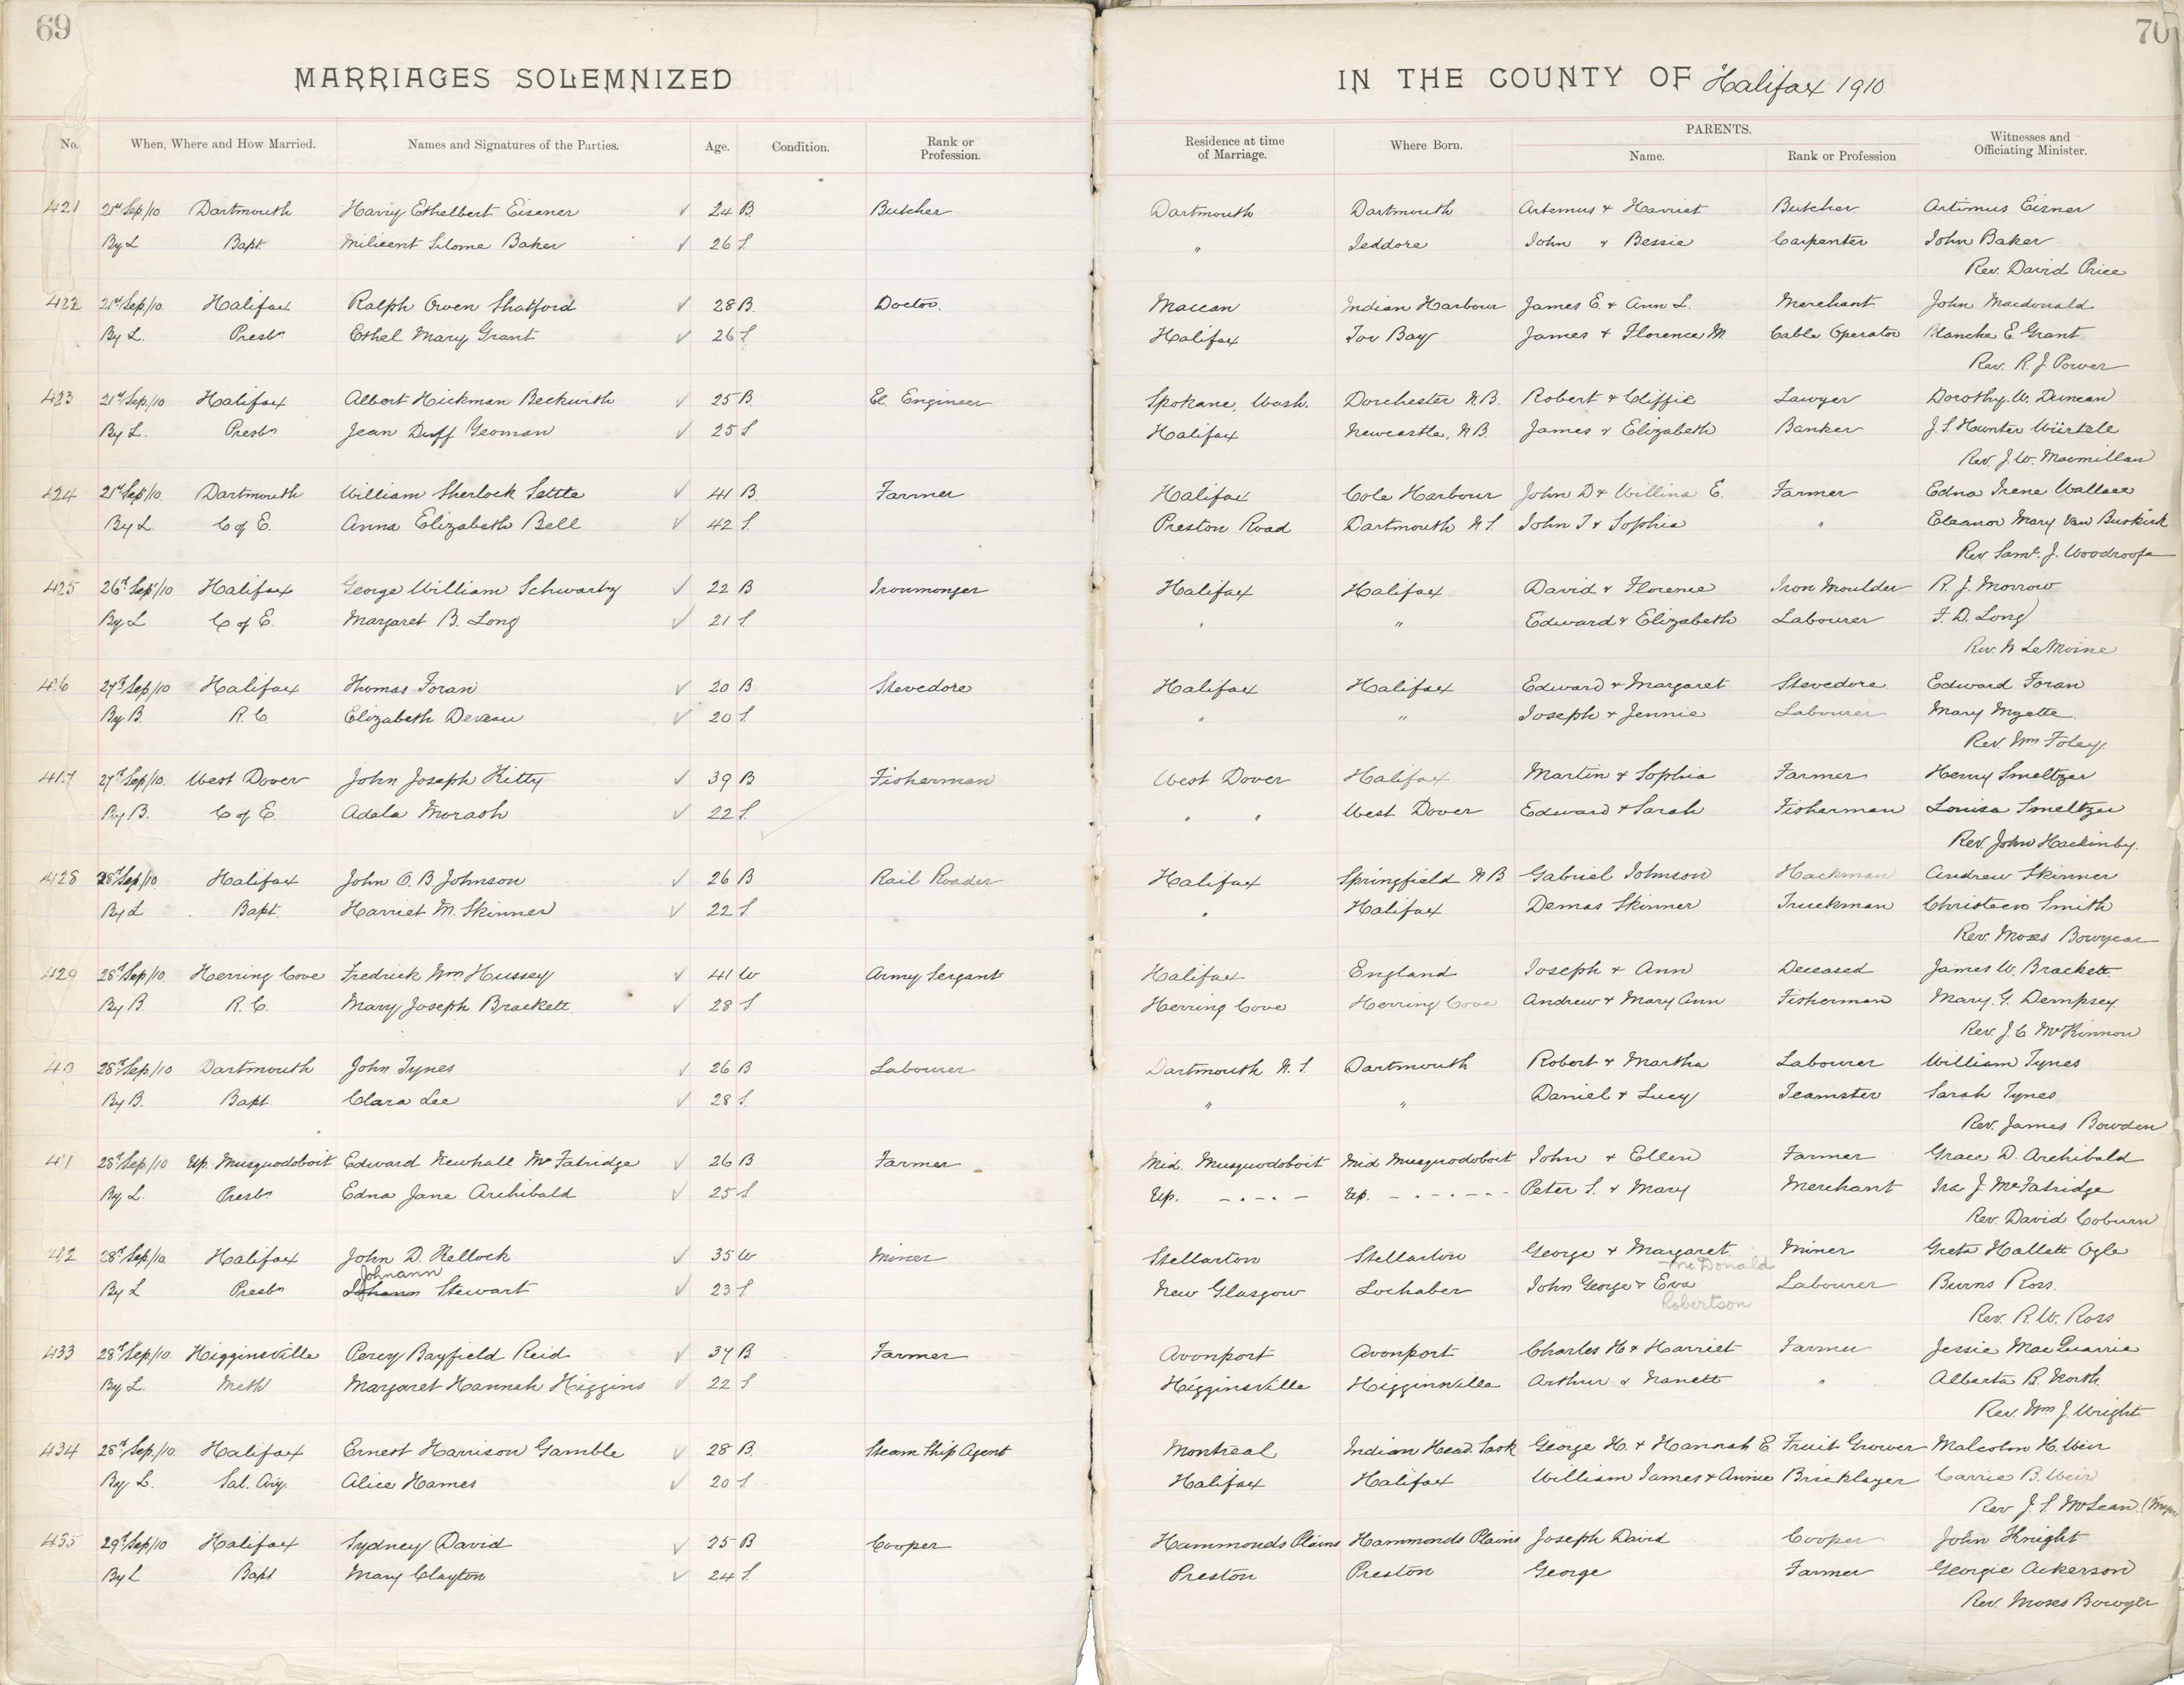 69
70
MARRIAGES SOLEMNIZED IN THE COUNTY OF Halifax 1910
PARENTS.
No. When, Where and How Married. Names and Signatures of the Parties. Age. Condition. Rank or Profession. Residence at time of Marriage. Where Born. Name. Rank or Profession Witnesses and Officiating Minister.
421 21st Sep/10 Dartmouth Harry Ethelbert Eisener ✓ 24 B. Butcher Dartmouth Dartmouth Artemus & Harriet Butcher Artimus Eisner
By L Bapt Milicent Silome Baker ✓ 26 S. " Jeddore John & Bessie Carpenter John Baker
Rev. David Price
422 21st Sep/10. Halifax Ralph Owen Shatford ✓ 28 B. Doctor. Maccan Indian Harbour James E. & Ann L. Merchant John Macdonald
By L. Presbn Ethel Mary Grant ✓ 26 S Halifax Tor Bay James & Florence M. Cable Operator Blanche E. Grant
Rev. R. J. Power
423 21st Sep/10 Halifax Albert Hickman Beckwith ✓ 25 B. El. Engineer Spokane, Wash. Dorchester N.B. Robert & Cliffie Lawyer Dorothy. W. Duncan
By L. Presbn Jean Duff Yeoman ✓ 25 S Halifax Newcastle, N.B. James & Elizabeth Banker J. S. Hounter Würtele
Rev. J. W. Macmillan
424 21st Sep/10 Dartmouth William Sherlock Settle ✓ 41 B. Farmer Halifax Cole Harbour John D & Willina E. Farmer Edna Irene Wallace
By L C of E. Anna Elizabeth Bell ✓ 42 S. Preston Road Dartmouth N.S. John T & Sophia " Eleanor Mary Van Buskirk
Rev. Saml. J. Woodroofe
425 26th Sep/10 Halifax George William Schwartz ✓ 22 B Ironmonger Halifax Halifax David & Florence Iron Moulder R. J. Morrow
By L C of E. Margaret B. Long ✓ 21 S. " " Edward & Elizabeth Labourer F. D. Long
Rev. N LeMoine
426 27th Sep/10 Halifax Thomas Foran ✓ 20 B Stevedore Halifax Halifax Edward & Margaret Stevedore Edward Foran
By B. R. C Elizabeth Deveau ✓ 20 S. " " Joseph & Jennie Labourer Mary Myette
Rev. Wm Foley.
427 27th Sep/10. West Dover John Joseph Kitty ✓ 39 B Fisherman West Dover Halifax Martin & Sophia Farmer Henry Smeltzer
By B. C of E. Adala Morash ✓ 22 S. " " West Dover Edward & Sarah Fisherman Louisa Smeltzer
Rev. John
428 28th Sep/10. Halifax John O. B Johnson ✓ 26 B Rail Roader Halifax Springfield N B Gabriel Johnson Hackman Andrew Skinner
By L Bapt. Harriet M. Skinner ✓ 22 S. " Halifax Demas Skinner Truckman Christeen Smith
Rev. Moses Bowyear
429 28th Sep/10 Herring Cove Fredrick Wm Hussey ✓ 41 W Army Sergant Halifax England Joseph & Ann Deceased James W. Brackett
By B. R. C. Mary Joseph Brackett ✓ 28 S. Herring Cove Herring Cove Andrew & Mary Ann Fisherman Mary. G. Dempsey
Rev. J. C McKinnon
4 0 28th Sep/10 Dartmouth John Tynes ✓ 26 B Labourer Dartmouth N.S. Dartmouth Robert & Martha Labourer William Tynes
By B. Bapt Clara Lee ✓ 28 S. " " Daniel & Lucy Teamster Sarah Tynes
Rev. James Bowden
4 1 28th Sep/10 Up. Musquodoboit Edward Newhall McFatridge ✓ 26 B Farmer Mid. Musquodoboit Mid Musquodoboit John & Ellen Farmer Grace D. Archibald
By L. Presbn Edna Jane Archibald ✓ 25 S Up. - . - . - Up. - . - . - . - Peter S. & Mary Merchant Ira J. McFatridge
Rev. David Coburn
4 2 28th Sep/10 Halifax John D. Kellock ✓ 35 W Miner Stellarton Stellarton George & Margaret Miner Greta Hallett Ogle
McDonald
Johnann
By L Presbn Johann Stewart ✓ 23 S. New Glasgow Lochaber John George & Eva Labourer Burns Ross.
Robertson
Rev. R. W. Ross
433 28th Sep/10. Higginsville Percy Bayfield Reid ✓ 37 B. Farmer Avonport Avonport Charles H & Harriet Farmer Jessie MacQuarrie
By L. Meth Margaret Hannah Higgins ✓ 22 S Higginsville Higginsville Arthur & Nanett " Alberta B. North
Rev. Wm J. Wright
434 28th Sep/10 Halifax Ernest Harrison Gamble ✓ 28 B. Steam Ship Agent Montreal Indian Head. Sask George H. & Hannah E Fruit Grower Malcolm H. Weir
By L. Sal. Army. Alice Hames ✓ 20 S Halifax Halifax William James & Annie Bricklayer Carrie B. Weir
Rev J. S. McLean.
435 29th Sep/10 Halifax Sydney David ✓ 25 B Cooper Hammonds Plains Hammonds Plains Joseph David Cooper John Knight
By L Bapt Mary Clayton ✓ 24 S. Preston Preston George Farmer Georgie Ackerson
Rev. Moses Bowyer